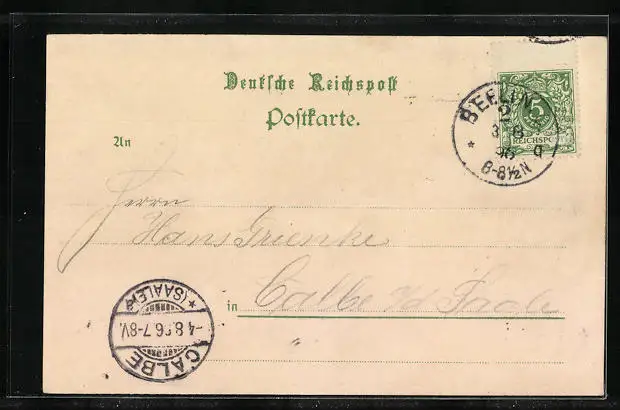 Deutsche Reichspost
Postkarte.
5
REICHSPOST
BERLIN
3 8
96 9
8-8½N
An
Herrn
Hans Grienke
in Calbe a/d Saale
* (SAALE) *
-4.8.96.7-8V.
CALBE